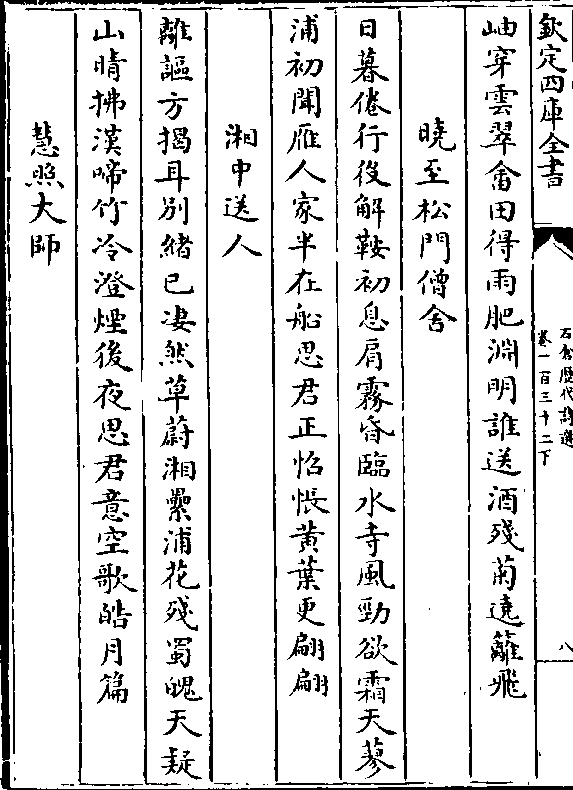 欽定四庫全書
石倉歷代詩選
卷一百三十二下
八
岫穿雲翠畬田得雨肥淵明誰送酒殘菊遶籬飛
曉至松門僧舍
日暮倦行役解鞍初息肩霧昏臨水寺風勁欲霜天蓼
浦初聞雁人家半在船思君正怊悵黃葉更翩翩
湘中送人
離謳方揭耳別緒已凄然草蔚湘纍浦花殘蜀魄天疑
山晴拂漢啼竹冷澄煙後夜思君意空歌皓月篇
慧照大師